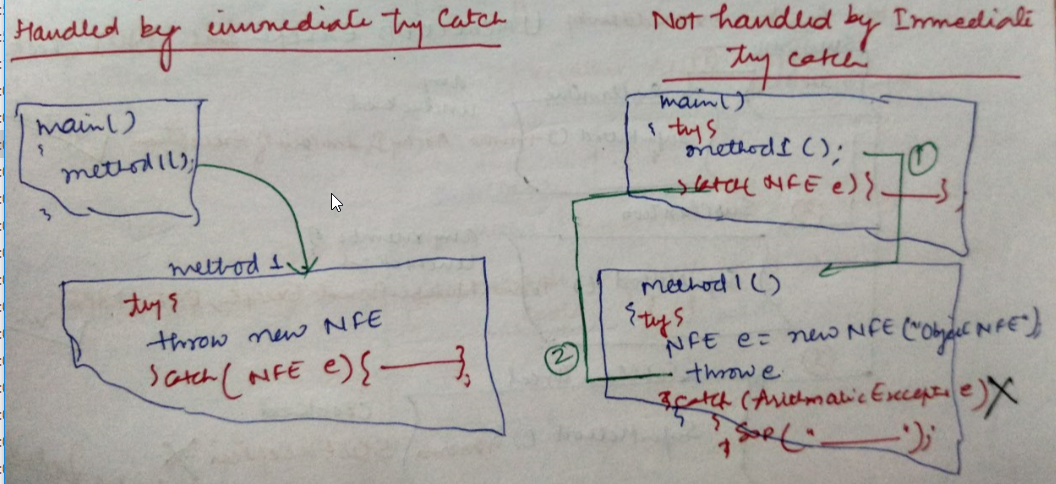 Handled by immediate try Catch
main()
{
method1();
}
method 1
try{
throw new NFE
}catch( NFE e){ ——— };
Not handled by Immediate
try catch
main()
{ try{
method1();
}catch( NFE e){ ——— }
①
method1()
{ try{
NFE e= new NFE ("Object NFE");
② throw e
}catch (Arithmatic Exception e) X
{ SOP( "———");
}
}